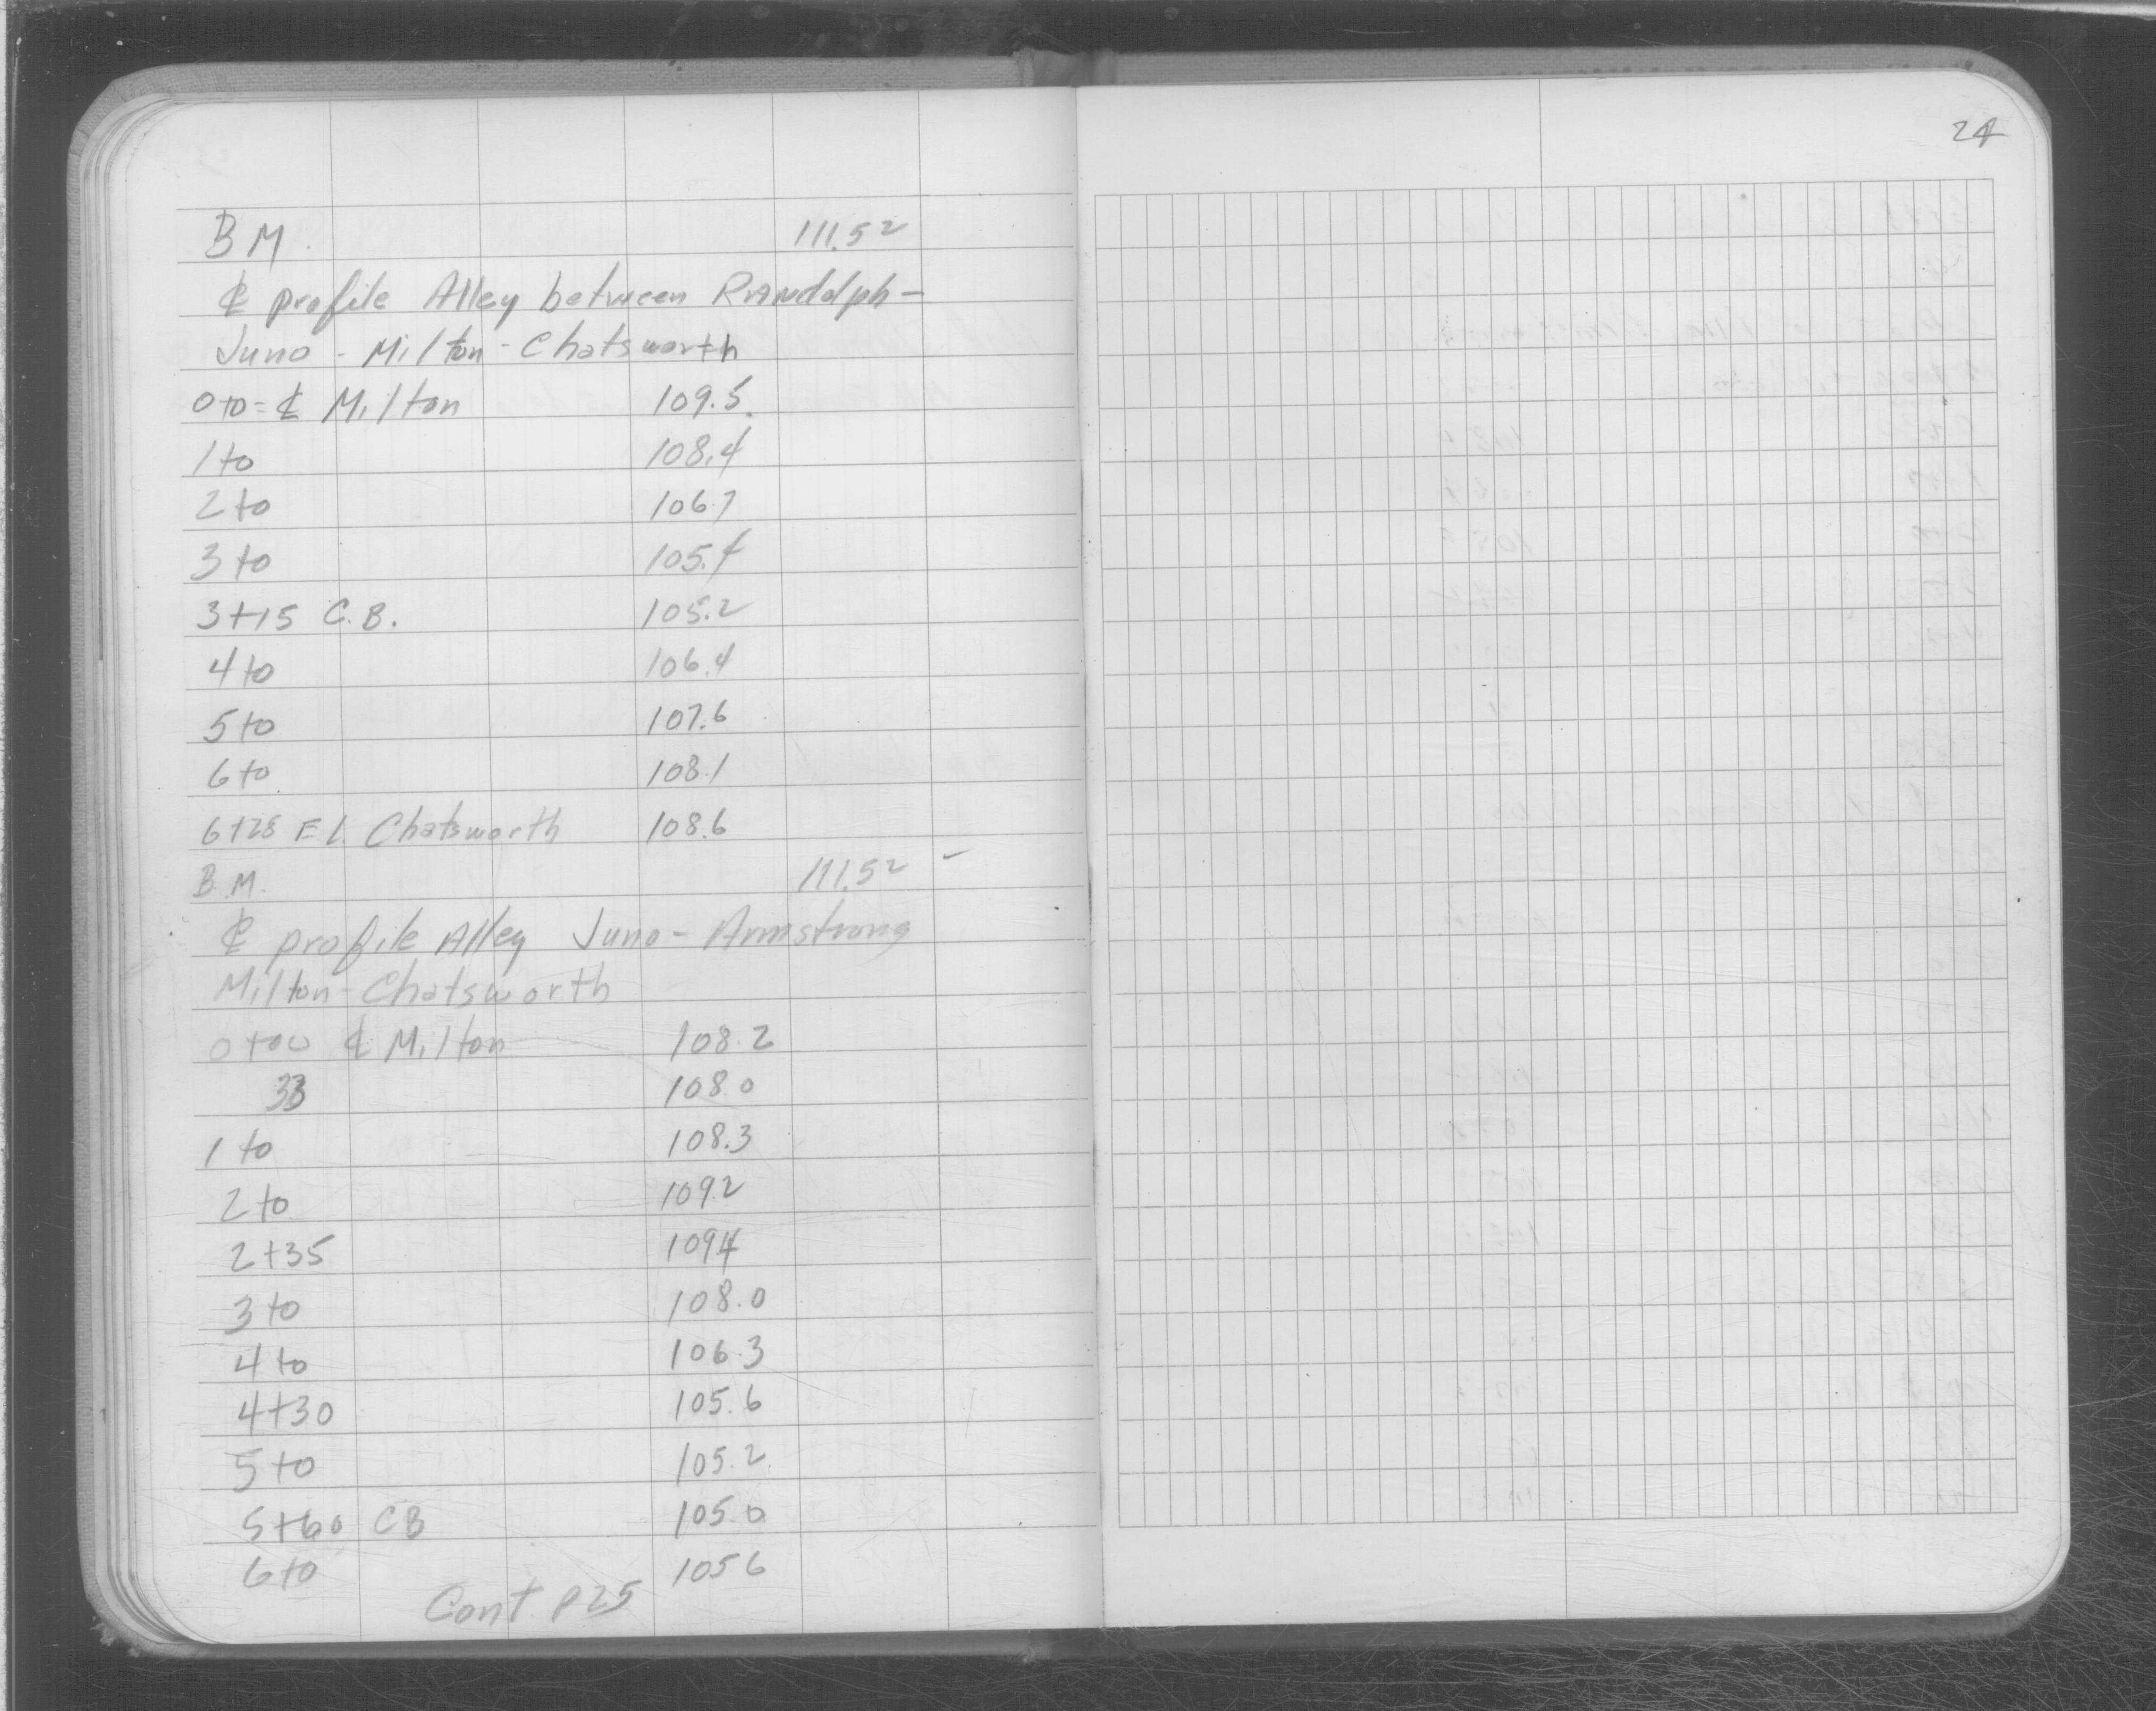 24
B M. 111.52
℄ profile Alley between Randolph-
Juno - Milton - Chatsworth
0+0=℄ Milton 109.5
1+0 108.4
2+0 106.7
3+0 105.4
3+15 C.B. 105.2
4+0 106.4
5+0 107.6
6+0 108.1
6+28 E L. Chatsworth 108.6
B.M. 111.52 -
℄ profile Alley Juno - Armstrong
Milton - Chatsworth
0+00 ℄ Milton 108.2
33 108.0
1+0 108.3
2+0 109.2
2+35 109.4
3+0 108.0
4+0 106.3
4+30 105.6
5+0 105.2
5+60 CB 105.0
6+0 105 6
Cont P25